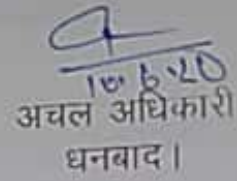 10.6.20
अचल अधिकारी
धनबाद।